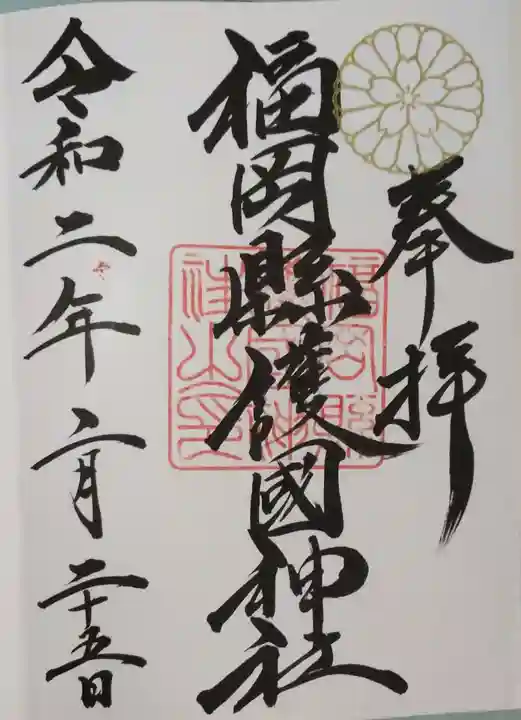 奉拝
福岡縣護國神社
令和二年二月二十五日